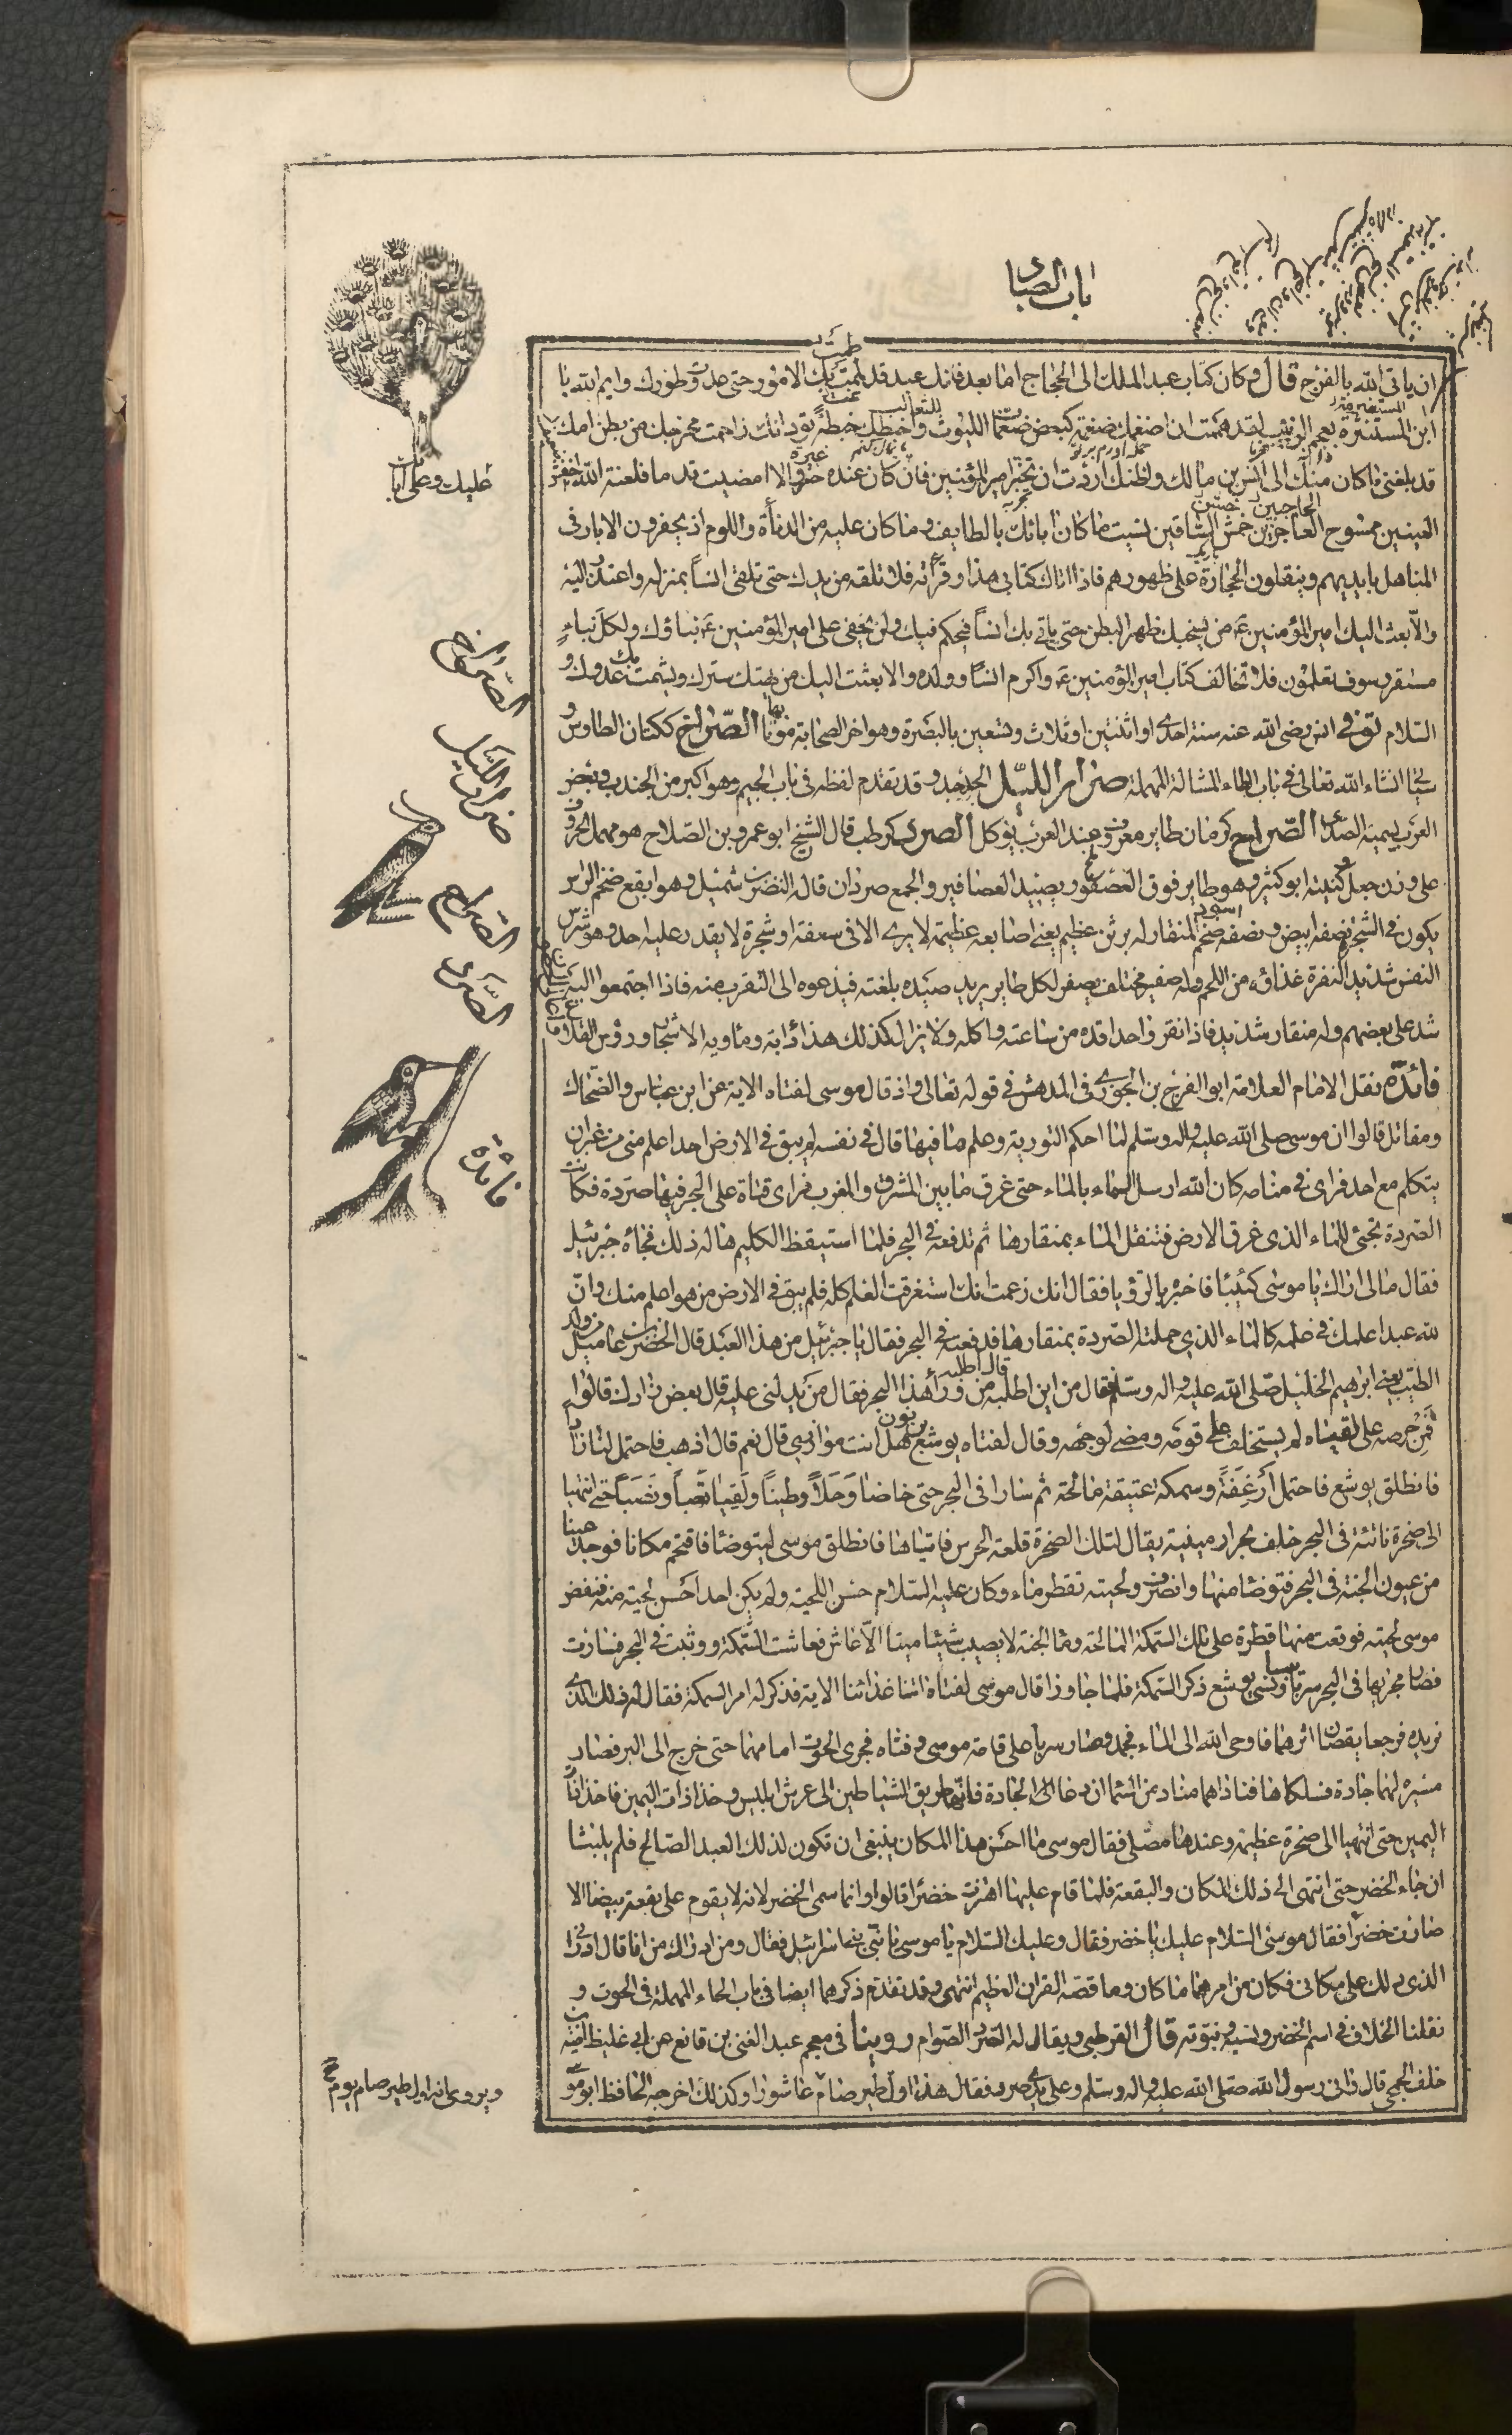 باب الصاد
ان ياتى الله بالفرج قال وكان كتاب عبد الملك الى الحجاج اما بعد فانك عبد قد طمت بك الامور حتى عدوت طورك وايم الله يا
ابن المستنثرة بعجم الزبيب لقد هممت ان اضغمك ضغمة كبعض ضغمات الليوث واخبطك خبطة تود انك زاحمت مخرجك من بطن امك
قد بلغنى ما كان منك الى انس بن مالك واظنك اردت ان تختبر امير المؤمنين فان كان عنده والا امضيت قدما فلعنة الله اخفش
عليك وعلى آبائك
العينين ممسوح الجاعرتين حمش الساقين نسيت ما كان ابائك بالطايف وما كان عليه من الدنأة واللوم اذ يحفرون الابار فى
المناهل بايديهم وينقلون الحجارة على ظهورهم فاذا اتاك كتابى هذا وقرأته فلا تلقه من يدك حتى تلقى انسا بمنزله واعتذر اليه
والا بعث اليك امير المؤمنين من يسحبك ظهرا لبطن حتى ياتى بك انسا فيحكم فيك ولن يخفى على امير المؤمنين نباؤك ولكل نباء
مستقر وسوف تعلمون فلا تخالف كتاب امير المؤمنين واكرم انسا وولده والا بعثت اليك من يهتك سترك ويشمت بك عدوك و
السلام توفى انس رضى الله عنه سنة احدى او اثنتين او ثلاث وتسعين بالبصرة وهو اخر الصحابة موتا بها الصراخ ككتان الطاوس و
سياتى انشاء الله تعالى فى باب الطاء المشالة المهملة صرار الليل الجدجد وقد تقدم لفظه فى باب الجيم وهو اكبر من الجندب وبعض
العرب يسميه الصدى الصراح كرمان طاير معروف عند العرب يؤكل الصرد كرطب قال الشيخ ابو عمرو بن الصلاح هو مهمل الحروف
على وزن جعل وكنيته ابو كثير وهو طاير فوق العصفور يصيد العصافير والجمع صردان قاله النضر بن شميل وهو ابقع ضخم الراس
يكون فى الشجر نصفه ابيض ونصفه اسود ضخم المنقار له برثن عظيم يعنى اصابعه عظيمة لا يرى الا فى سعفة او شجرة لا يقدر عليه احد وهو شرس
النفس شديد النفرة غذاؤه من اللحم وله صفير مختلف يصفر لكل طاير يريد صيده بلغته فيدعوه الى التقرب منه فاذا اجتمعوا اليه
شد على بعضهم وله منقار شديد فاذا نقر واحدا قده من ساعته واكله ولا يزال كذلك هذا دابه وماويه الاشجار ورؤس القلاع
فائدة نقل الامام العلامة ابو الفرج بن الجوزى فى المدهش فى قوله تعالى واذ قال موسى لفتاه الاية عن ابن عباس والضحاك
ومقاتل قالوا ان موسى صلى الله عليه واله وسلم لما احكم التورية وعلم ما فيها قال فى نفسه لم يبق فى الارض احد اعلم منى من غير ان
يتكلم مع احد فراى فى منامه كان الله ارسل السماء بالماء حتى غرق ما بين المشرق والمغرب فراى قناة على البحر فيها صردة فكانت
الصردة تجئ للماء الذى غرق الارض فتنقل الماء بمنقارها ثم تدفعه فى البحر فلما استيقظ الكليم هاله ذلك فجاءه جبرئيل
فقال مالى اراك يا موسى كئيبا فاخبره بالرؤيا فقال انك زعمت انك استغرقت العلم كله فلم يبق فى الارض من هو اعلم منك وان
لله عبدا علمك فى علمه كالماء الذى حملته الصردة بمنقارها فدفعته فى البحر فقال يا جبرئيل من هذا العبد قال الخضر بن عاميل من ولد
الطيب يعنى ابرهيم الخليل صلى الله عليه واله وسلم فقال من اين اطلبه قال اطلبه من وراء هذا البحر فقال من يدلنى عليه قال بعض زادك قالوا
فمن حرصه على لقياه لم يستخلف على قومه ومضى لوجهه وقال لفتاه يوشع بن نون هل انت موازرى قال نعم قال اذهب فاحتمل لنا زادا
فانطلق يوشع فاحتمل ارغفة وسمكة عتيقة مالحة ثم سارا فى البحر حتى خاضا وحلا وطينا ولقيا تعبا ونصبا حتى انتهيا
الى صخرة ناتئة فى البحر خلف بحر ارمينية يقال لتلك الصخرة قلعة الحرس فاتياها فانطلق موسى ليتوضأ فاقتحم مكانا فوجد عينا
من عيون الجنة فى البحر فتوضا منها وانصرف ولحيته تقطر ماء وكان عليه السلام حسن اللحية ولم يكن احد احسن لحية منه فنفض
موسى لحيته فوقعت منها قطرة على تلك السمكة المالحة وماء الجنة لا يصيب شيئا ميتا الا عاش فعاشت السمكة ووثبت فى البحر فسارت
فصار مجريها فى البحر سربا يبسا ونسى يوشع ذكر السمكة فلما جاوزا قال موسى لفتاه اتنا غذائنا الاية فذكر له امر السمكة فقال له ذلك الذى
نريده فرجعا يقصان اثرهما فاوحى الله الى الماء فجمد وصار سربا على قامة موسى وفتاه فجرى الحوت امامهما حتى خرج الى البر فصار
مسيره لهما جادة فسلكاها فناداهما مناد من السماء ان دعا الجادة فانها طريق الشياطين الى عرش ابليس وخذا ذات اليمين فاخذا ذات
اليمين حتى انتهيا الى صخرة عظيمة وعندها مصلى فقال موسى ما احسن هذا المكان ينبغى ان تكون لذلك العبد الصالح فلم يلبثا
ان جاء الخضر حتى انتهى الى ذلك المكان والبقعة فلما قام عليها اهتزت خضرا قالوا وانما سمى الخضر لانه لا يقوم على بقعة بيضا الا
صارت خضرا فقال موسى السلام عليك يا خضر فقال وعليك السلام يا موسى يا نبى بنى اسرائيل فقال ومن ادراك من انا قال ادرانى
الذى دلك على مكانى فكان من امرهما ما كان وما قصه القران العظيم انتهى وقد تقدم ذكرهما ايضا فى باب الحاء المهملة فى الحوت و
نقلنا الخلاف فى اسم الخضر ونسبه ونبوته قال القرطبى ويقال له الصرد الصوام روينا فى معجم عبد الغنى بن قانع عن ابى غليظ امية بن
خلف الجمحى قال رانى رسول الله صلى الله عليه واله وسلم وعلى يدى صرد فقال هذا اول طير صام عاشورا وكذلك اخرجه الحافظ ابو موسى
الصراخ
صرار الليل
الصراح
الصرد
فائدة
ويروى انه اول طير صام يوم